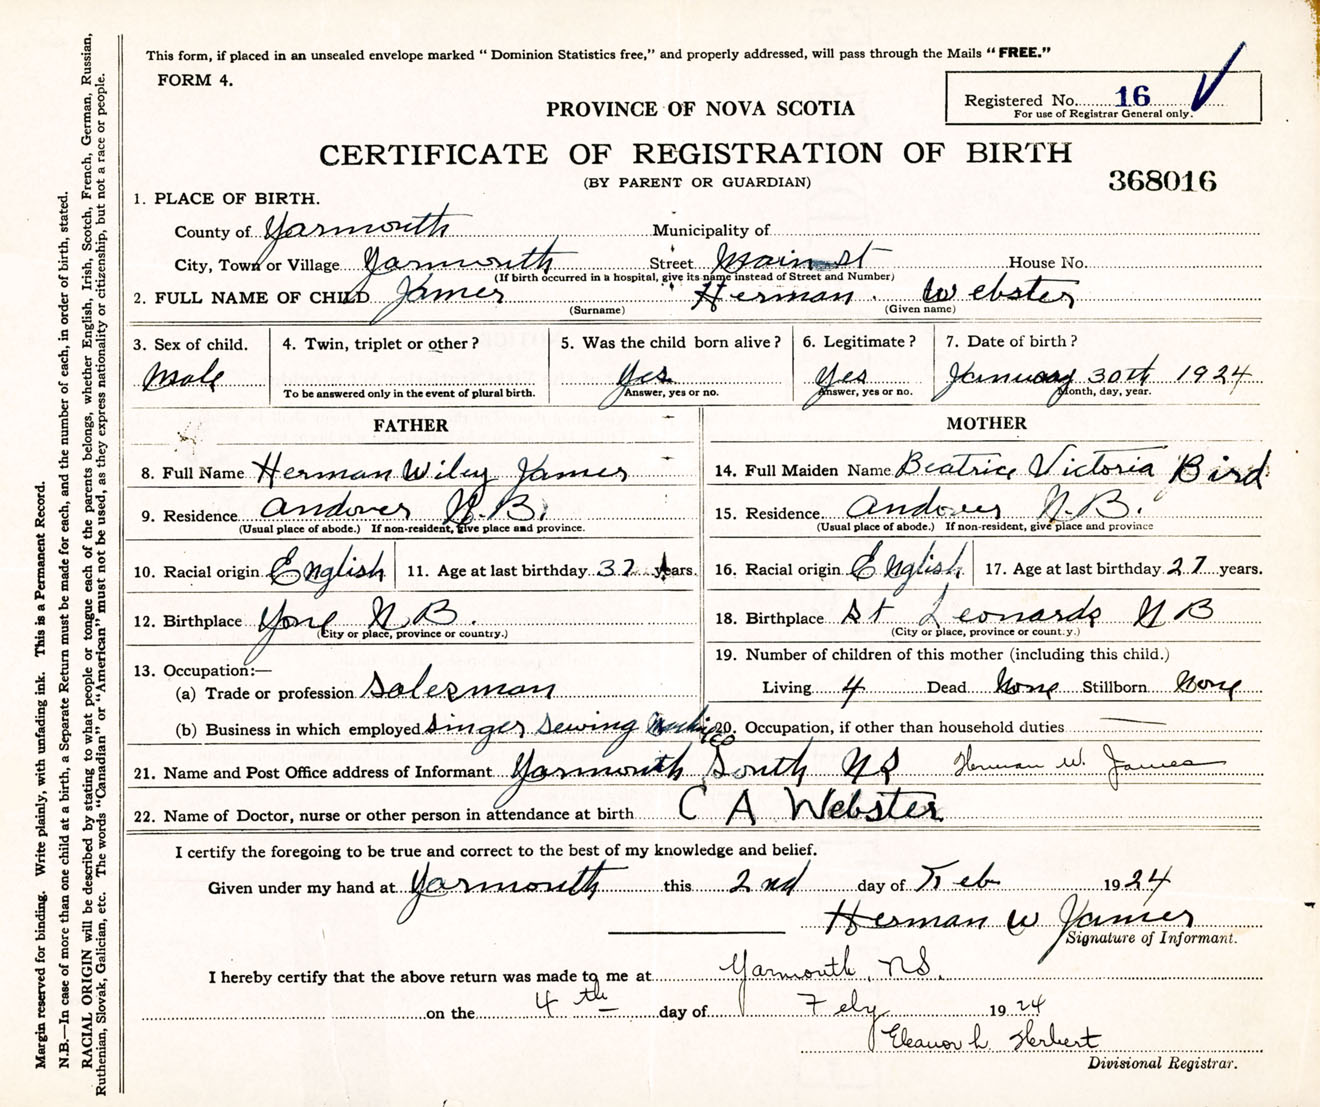 This form, if placed in an unsealed envelope marked “ Dominion Statistics free,” and properly addressed, will pass through the Mails “ FREE.”
FORM 4.
Registered No. 16
For use of Registrar General only.
PROVINCE OF NOVA SCOTIA
CERTIFICATE OF REGISTRATION OF BIRTH
(BY PARENT OR GUARDIAN)
368016
1. PLACE OF BIRTH.
County of Yarmouth Municipality of
City, Town or Village Yarmouth Street Main st House No.
(If birth occurred in a hospital, give its name instead of Street and Number)
2. FULL NAME OF CHILD James Herman Webster
(Surname) (Given name)
3. Sex of child. 4. Twin, triplet or other? 5. Was the child born alive? 6. Legitimate? 7. Date of birth?
Male Yes Yes January 30th 1924
To be answered only in the event of plural birth. Answer, yes or no. Answer, yes or no. Month, day, year.
FATHER MOTHER
8. Full Name Herman Wiley James 14. Full Maiden Name Beatrice Victoria Bird
9. Residence Andover N.B. 15. Residence Andover N.B.
(Usual place of abode.) If non-resident, give place and province. (Usual place of abode.) If non-resident, give place and province
10. Racial origin English 11. Age at last birthday years. 16. Racial origin English 17. Age at last birthday 27 years.
12. Birthplace N B. 18. Birthplace St Leonards N B
(City or place, province or country.) (City or place, province or country.)
13. Occupation:— 19. Number of children of this mother (including this child.)
(a) Trade or profession Salesman Living 4 Dead None Stillborn None
(b) Business in which employed Singer Sewing Machine Co 20. Occupation, if other than household duties
21. Name and Post Office address of Informant Yarmouth South NS Herman W. James
22. Name of Doctor, nurse or other person in attendance at birth C A Webster
I certify the foregoing to be true and correct to the best of my knowledge and belief.
Given under my hand at Yarmouth this 2nd day of Feb 1924
Herman W James
Signature of Informant.
I hereby certify that the above return was made to me at Yarmouth, N.S.
on the 4th day of Feby 1924
Eleanor L. Herbert
Divisional Registrar.
Margin reserved for binding. Write plainly, with unfading ink. This is a Permanent Record.
N.B.—In case of more than one child at a birth, a Separate Return must be made for each, and the number of each, in order of birth, stated.
RACIAL ORIGIN will be described by stating to what people or tongue each of the parents belongs, whether English, Irish, Scotch, French, German, Russian,
Ruthenian, Slovak, Galician, etc. The words “Canadian” or “American” must not be used, as they express nationality or citizenship, but not a race or people.